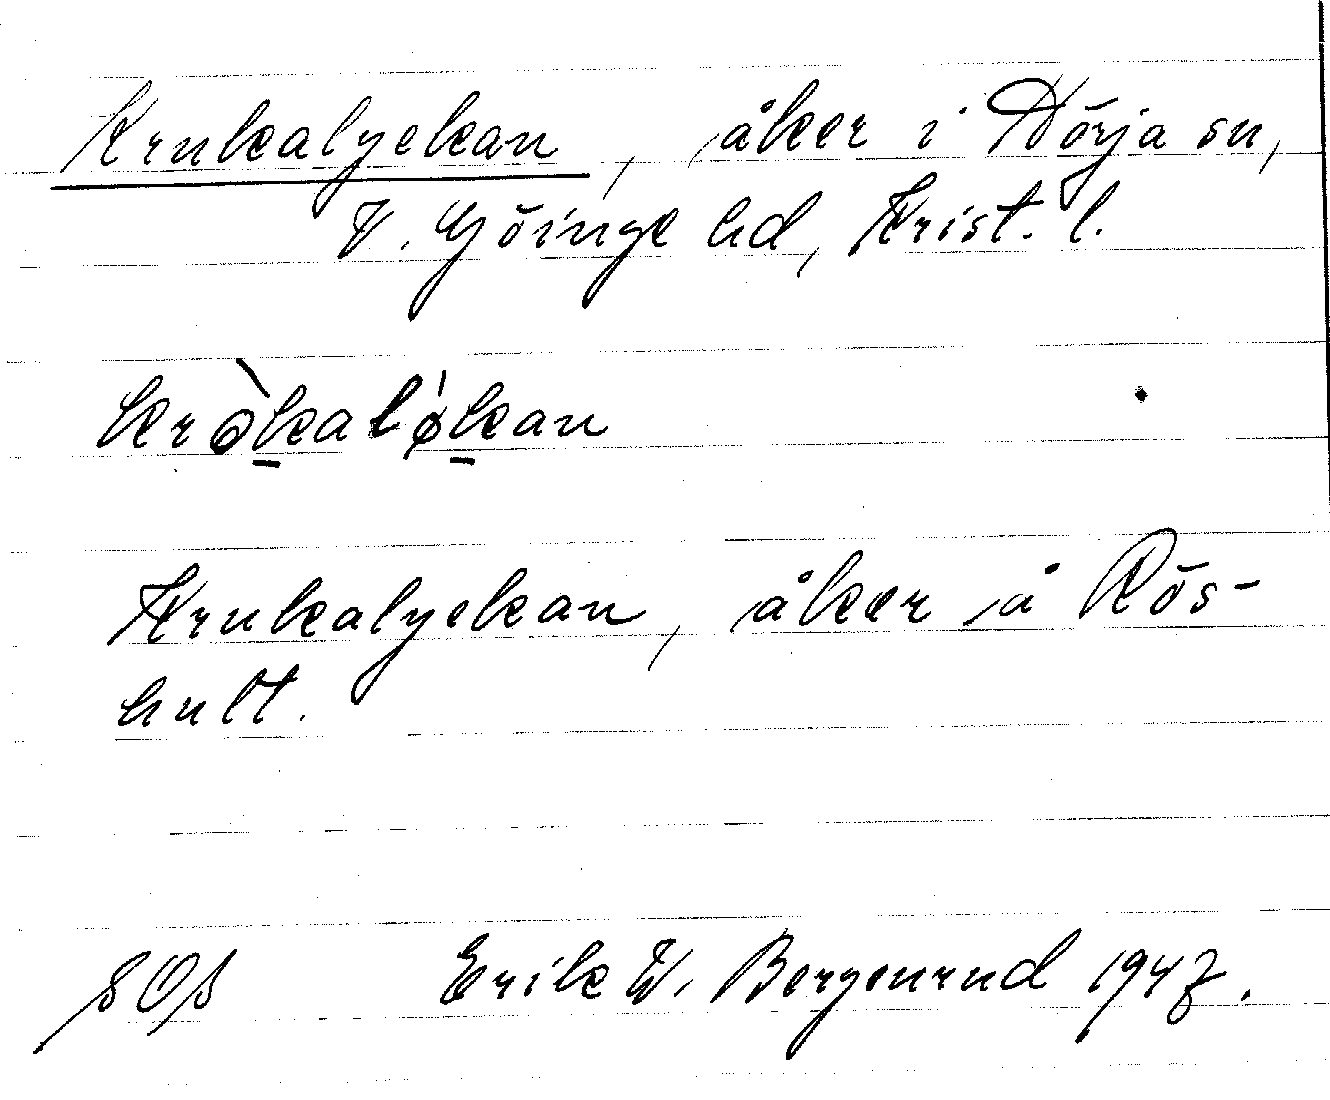 Krukalyckan, åker i Nörja sn,
V. Göinge hd, Krist. l.
kròkaløkan
Krukalyckan, åker å Rös-
hult.
SOS Erik W. Bergenrud 1947.